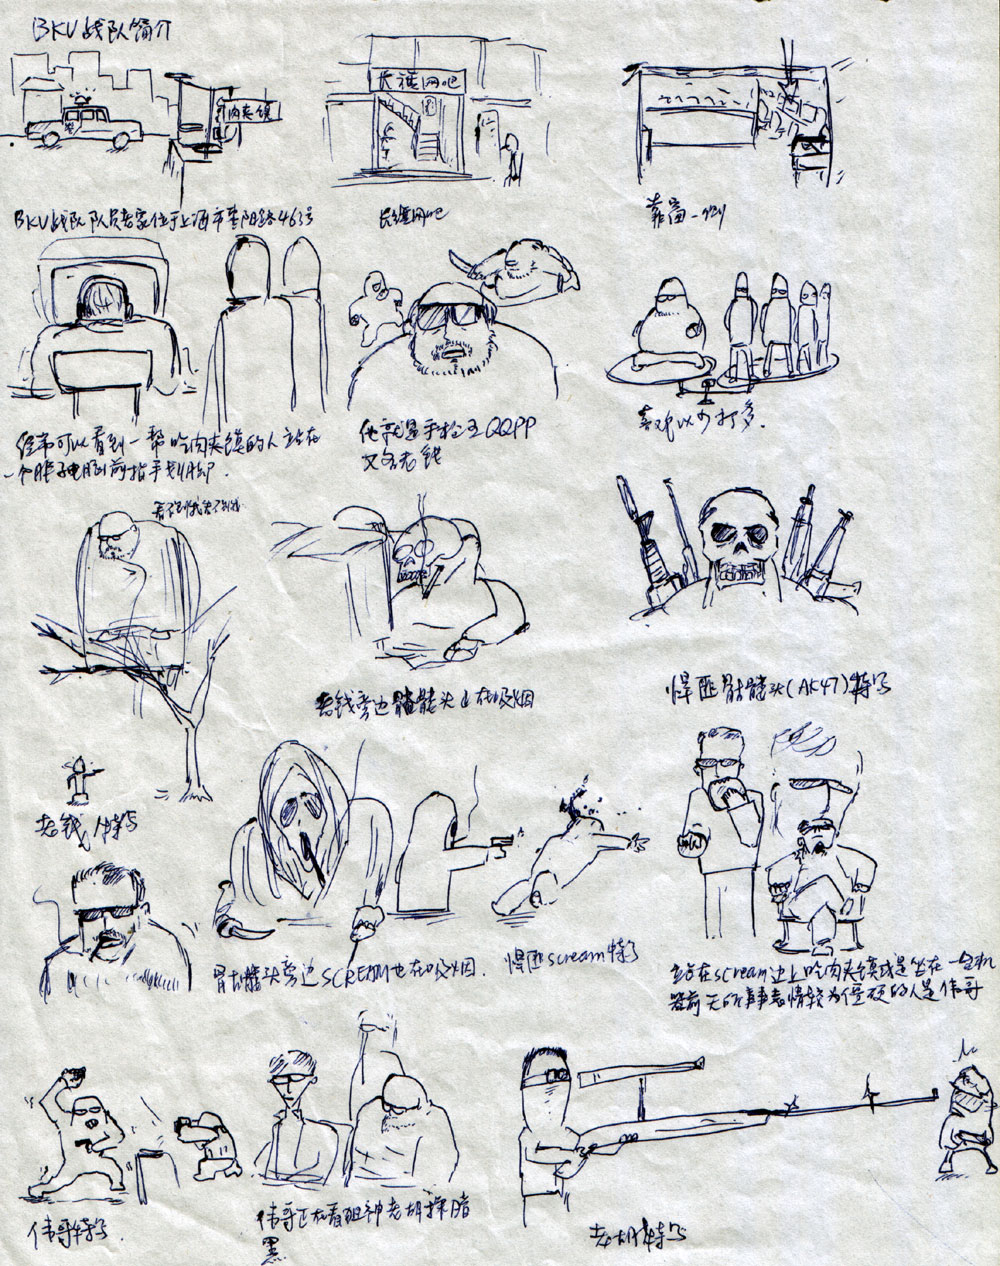 BKV战队简介
肉夹馍
长缝网吧
BKV战队队员老家位于上海市贵阳路463号
长缝网吧
靠窗一侧
经常可以看到一帮吃肉夹馍的人站在
一个胖子电脑前指手划脚.
他就是手枪王QQPP
又名老钱
喜欢以少打多.
看不到我看不到我
老钱旁边骷髅头也在吸烟
悍匪骷髅头(AK47)特写
老钱特写
骷髅头旁边SCREAM也在吸烟.
悍匪scream特写
站在scream边上吃肉夹馍或是坐在一台机
器前无所事事表情较为僵硬的人是伟哥
伟哥特写
伟哥正在看狙神老胡探暗
黑
老胡特写